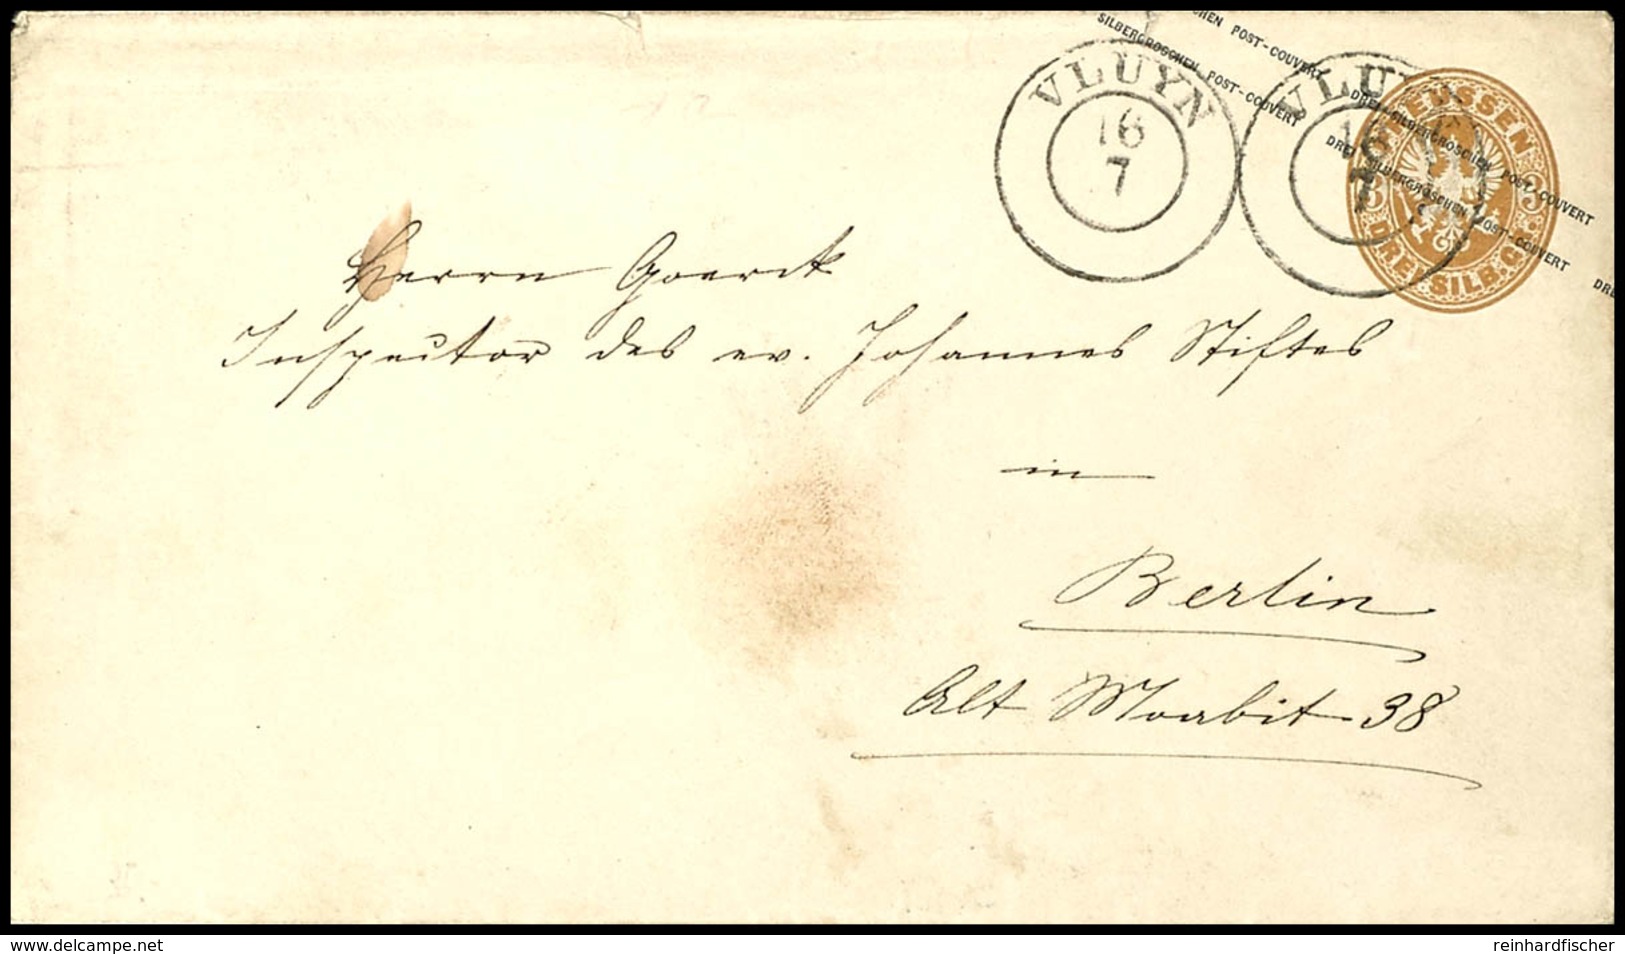 SILBERGROSCHEN POST-COUVERT
POST-COUVERT
VLUYN
16
7
VLUYN
16
7
DREI SILBERGROSCHEN POST-COUVERT
DREI SILBERGROSCHEN POST-COUVERT
PREUSSEN
3 3
DREI SILB.GR.
Herrn Goerck
Inspector des ev. Johannes Stiftes
in
Berlin
Alt Moabit 38
www.delcampe.net
reinhardfischer